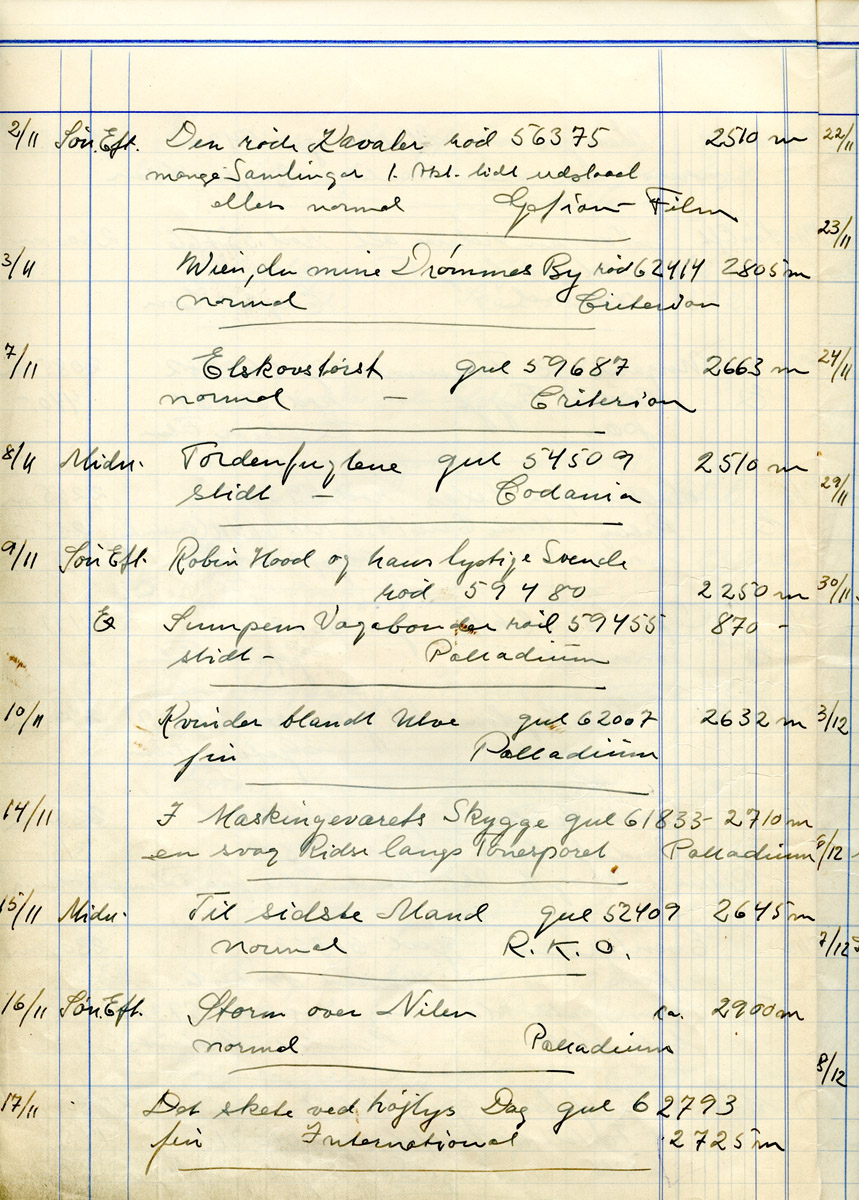 2/11 Søn. Eft. Den røde Kavaler rød 56375 2510 m
mange Samlinger 1. Akt. lidt udslaaet
ellers normal Gefion Film
3/11 Wien, du mine Drømmes By rød 62414 2805 m
normal Criterion
7/11 Elskovstørst gul 59687 2663 m
normal — Criterion
8/11 Midn. Tordenfuglene gul 54509 2510 m
slidt — Codania
9/11 Søn Eft. Robin Hood og hans lystige Svende
rød 59480 2250 m
Sumpens Vagabonder rød 59455 870 -
slidt - Palladium
10/11 Kvinder blandt Ulve gul 62007 2632 m
fin Palladium
14/11 I Maskingeværets Skygge gul 61833 - 2710 m
en svag Ridse langs Tonesporet Palladium
15/11 Midn. Til sidste Mand gul 52409 2645 m
normal R.K.O.
16/11 Søn. Eft. Storm over Nilen ca. 2900 m
normal Palladium
17/11 Det skete ved højlys Dag gul 62793
fin International 2725 m
22/11
23/11
24/11
29/11
30/11
3/12
6/12
7/12
8/12